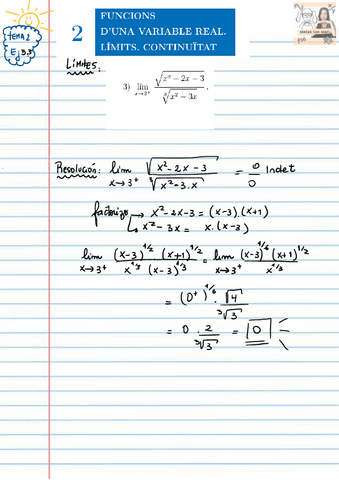 TEMA 2
Ej 3.3
2
FUNCIONS
D'UNA VARIABLE REAL.
LÍMITS. CONTINUÏTAT
LÍMITES:
3) lim x→3⁺ √(x² − 2x − 3) / ∛(x² − 3x) .
Resolución: lim x→3⁺ √(x² - 2x - 3) / ∛(x² - 3·x) = 0/0 Indet
factorizo → x² - 2x - 3 = (x-3)·(x+1)
→ x² - 3x = x·(x-3)
lim x→3⁺ (x-3)^1/2 (x+1)^1/2 / x^1/3 (x-3)^1/3 = lim x→3⁺ (x-3)^1/6 (x+1)^1/2 / x^1/3
= (0⁺)^1/6 · √4 / ∛3
= 0 · 2 / ∛3 = 0